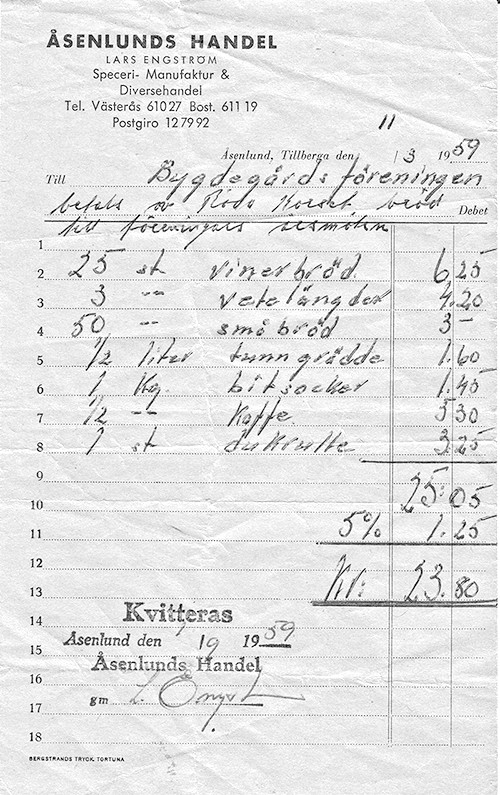 ÅSENLUNDS HANDEL
LARS ENGSTRÖM
Speceri- Manufaktur &
Diversehandel
Tel. Västerås 61027 Bost. 61119
Postgiro 127992
Åsenlund, Tillberga den 11/3 1959
Till Bygdegårds föreningen
betals av Röda Korset bröd Debet
till föreningens
1
2 25 st vinerbröd 6.25
3 3 -"- vetelängder 4.20
4 50 -"- småbröd 3-
5 1/2 liter tunn grädde 1.60
6 1 Kg. bitsocker 1.45
7 1/2 -"- Kaffe 5 30
8 1 st dukrulle 3.25
9
10 25:05
11 5% 1.25
12
13 Kr: 23.80
Kvitteras
14
Åsenlund den /9 1959
15
Åsenlunds Handel
16
gm L.
17
18
BERGSTRANDS TRYCK, TORTUNA